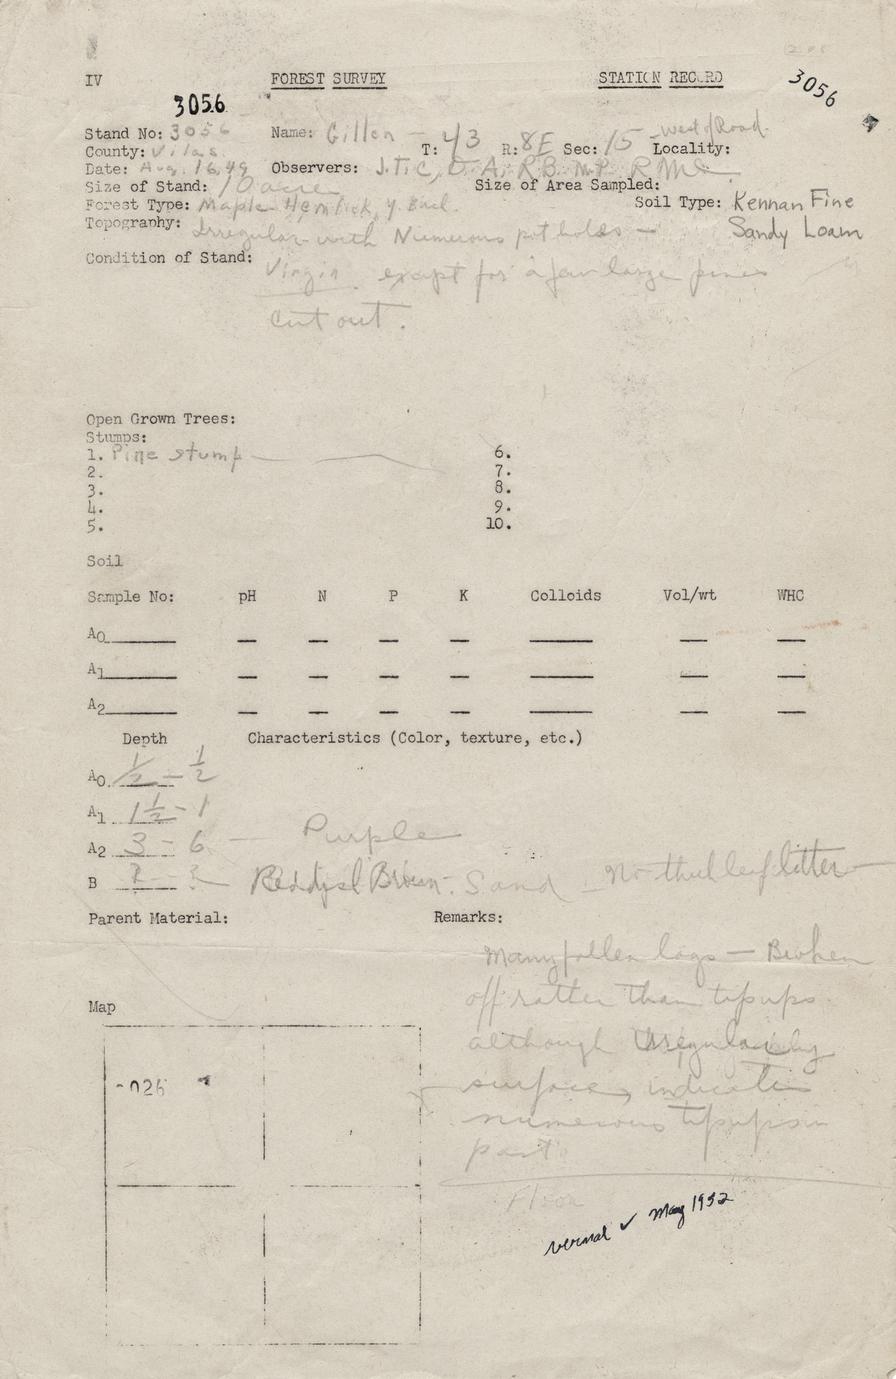 IV FOREST SURVEY STATION RECORD 3056
3056
Stand No: 3056 Name: Gillen — T: 43 R: 8E Sec: 15 Locality: West of Road
County: Vilas
Date: Aug. 16, 49 Observers: J.T.C, O.A, R.B. M.P. R Mc
Size of Stand: 10 acres Size of Area Sampled:
Forest Type: Maple Hemlock, y. Bud. Soil Type: Kennan Fine
Sandy Loam
Topography: Irregular with Numerous pit holes —
Condition of Stand: Virgin. except for a few large pines
cut out.
Open Grown Trees:
Stumps:
1. Pine stump 6.
2. 7.
3. 8.
4. 9.
5. 10.
Soil
Sample No: pH N P K Colloids Vol/wt WHC
A0
A1
A2
Depth Characteristics (Color, texture, etc.)
A0 1/2 - 1/2
A1 1 1/2 - 1
A2 3 - 6 — Purple
B ? - ? Reddish Brown - Sand - No thick leaf litter
Parent Material: Remarks:
Many fallen logs — Broken
off rather than tipups
although irregularity
surface, indicate
numerous tipups in
past
Map
-026
Floor
vernal ✓ May 1952